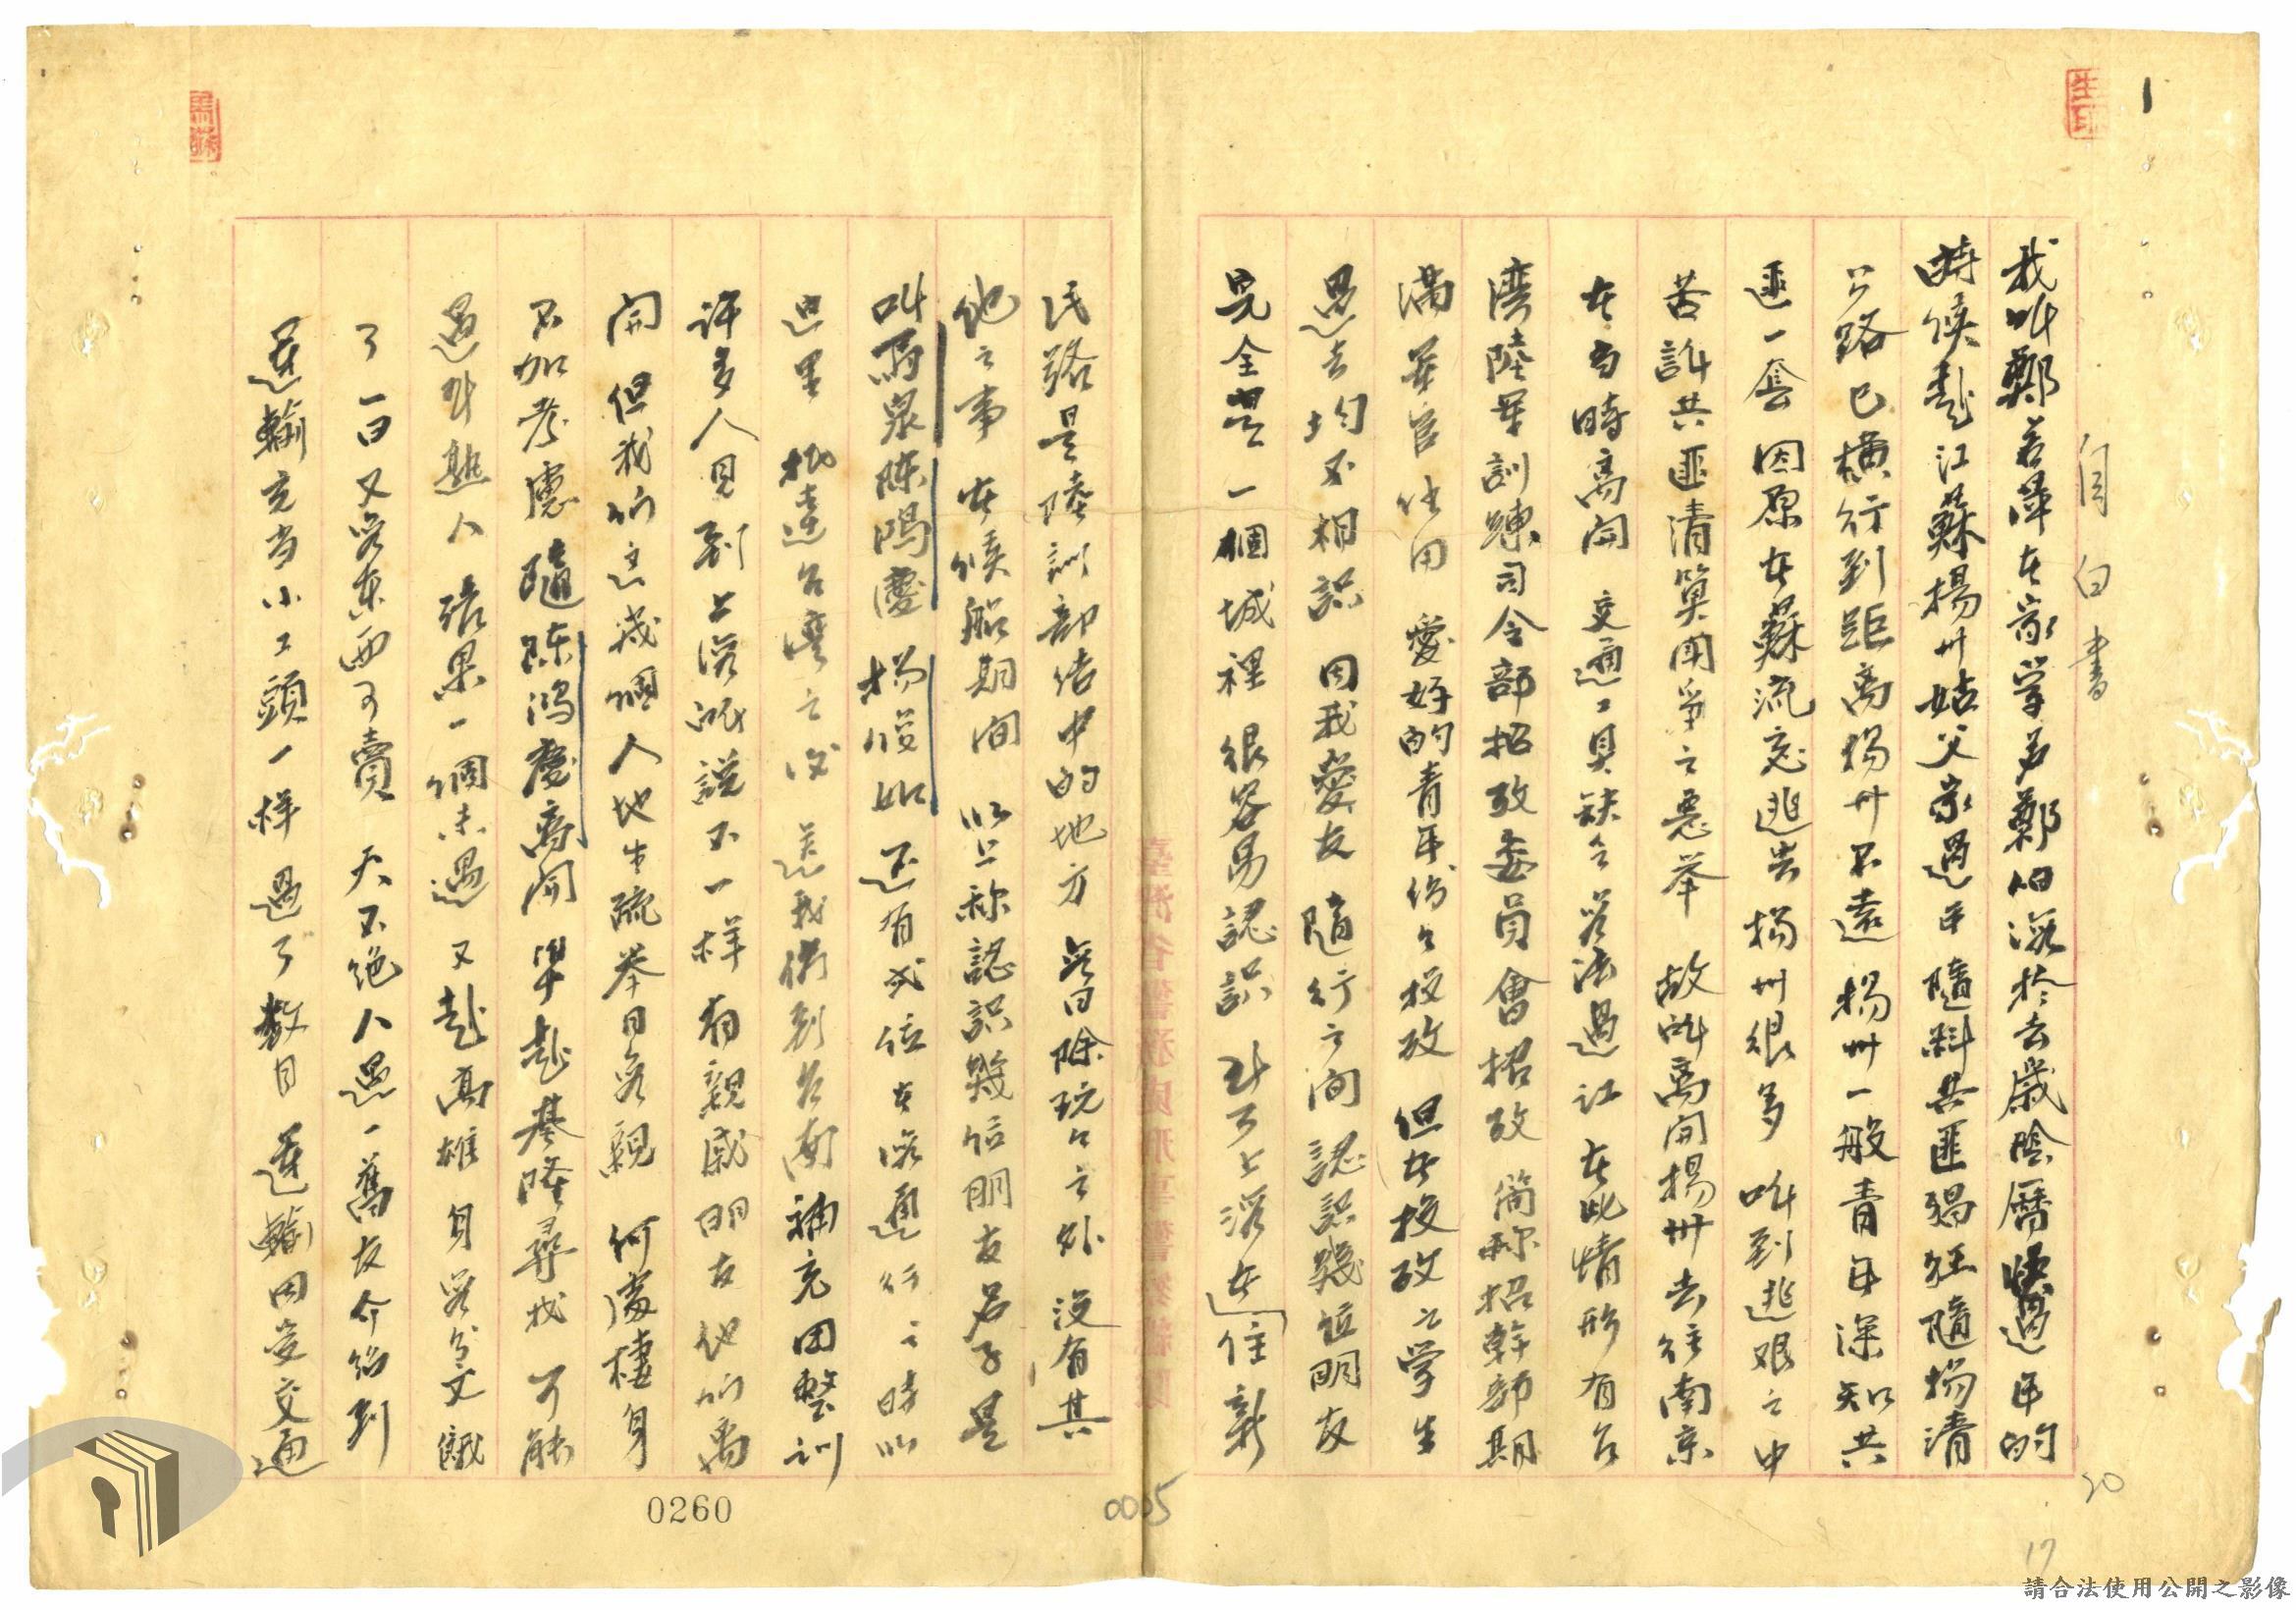 1
自白書
我叫鄭若萍在家掌弟鄭伯濤於去歲陰曆快過年的
時候赴江蘇揚州姑父家過年隨料共匪猖狂隨揚清
公路已橫行到距离揚州不遠揚州一般青年深知共
匪一套因原在蘇流亡逃出揚州很多叫到逃艰之中
苦訴共匪清算鬥爭之惡举故所离開揚州去往南京
在当時离開交通工具缺乏無法過江在此情形有台
湾陸軍訓練司令部招致委員會招致简称招幹部期
滿軍官任用愛好的青年份々投致但在投致之学生
過去均不相識因我愛友隨行之间認識幾位朋友
見全是一個城裡很容易認識到了上海在住新
民路是陸訓部借中的地方無日除玩々之外没有其
他之事在候船期间以上称認識幾位朋友名子是
叫 泉陳鴻慶楊 如还有 位在海通行之時以
迟里抵達台灣之後送我們到台南補充团整训
许多人見到上海所說不一样有親戚朋友他们离
開但我们这幾個人地生疏举目無親何處棲身
不加考慮隨陳鴻慶离開単赴基隆尋找可能
過时熟人結果一個未遇又赴高雄身無分文餓
了一日又無東西可賣天不绝人遇一舊友介绍到
運輸充当小工頭一样過了数日運輸因受交通
0260
0005
20
17
請合法使用公開之影像